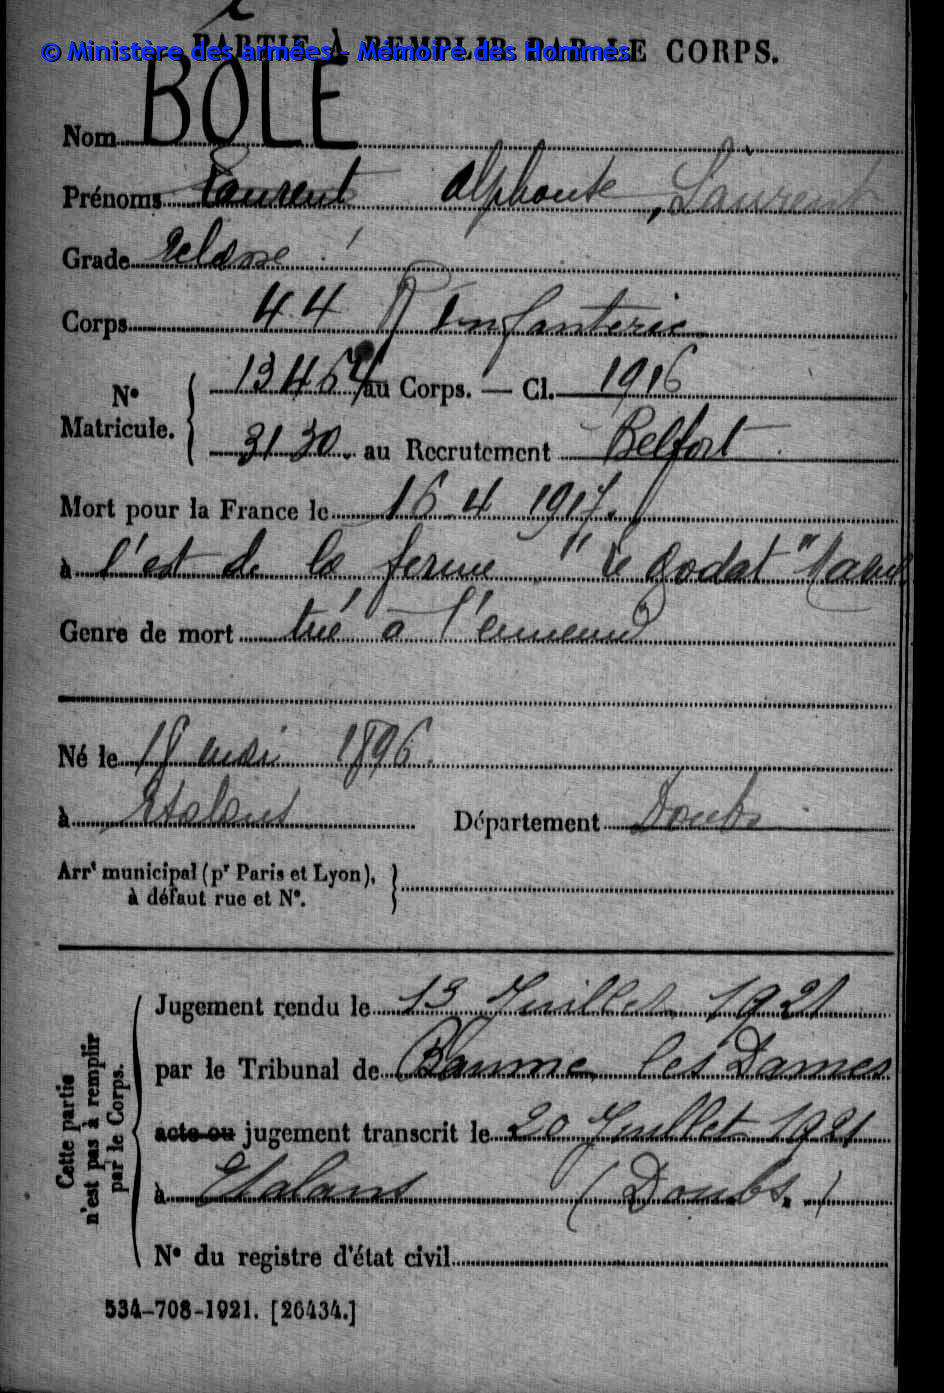 PARTIE À REMPLIR PAR LE CORPS.
© Ministère des armées - Mémoire des Hommes
Nom BOLE
Prénoms Laurent Alphonse, Laurent
Grade 2e classe
Corps 44 R Infanterie
N° Matricule. 13464 au Corps. — Cl. 1916
3130. au Recrutement Belfort
Mort pour la France le 16.4 1917.
à l'est de la ferme "le Godat" Marne
Genre de mort tué à l'ennemi
Né le 18 mai 1896.
à Etalans Département Doubs
Arrt municipal (pr Paris et Lyon),
à défaut rue et N°.
Cette partie n'est pas à remplir par le Corps.
Jugement rendu le 13 Juillet 1921
par le Tribunal de Baume les Dames
acte ou jugement transcrit le 20 Juillet 1921
à Etalans (Doubs.)
N° du registre d'état civil
534-708-1921. [26434.]